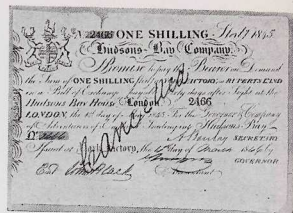 No. 2466 ONE SHILLING Stg. 1845
Hudsons Bay Company.
Promise to pay the Bearer on Demand
the Sum of ONE SHILLING Sterling FACTORY in RUPERTS LAND
in a Bill of Exchange payable days after Sight at the
Hudsons Bay House London 2466
LONDON, the 1st day of 1845 For the Governor & Company
of Adventurers of England trading into Hudsons Bay
2466 SECRETARY
Issued at York Factory, the day of March 1846 by
GOVERNOR
Cancelled
Entd.